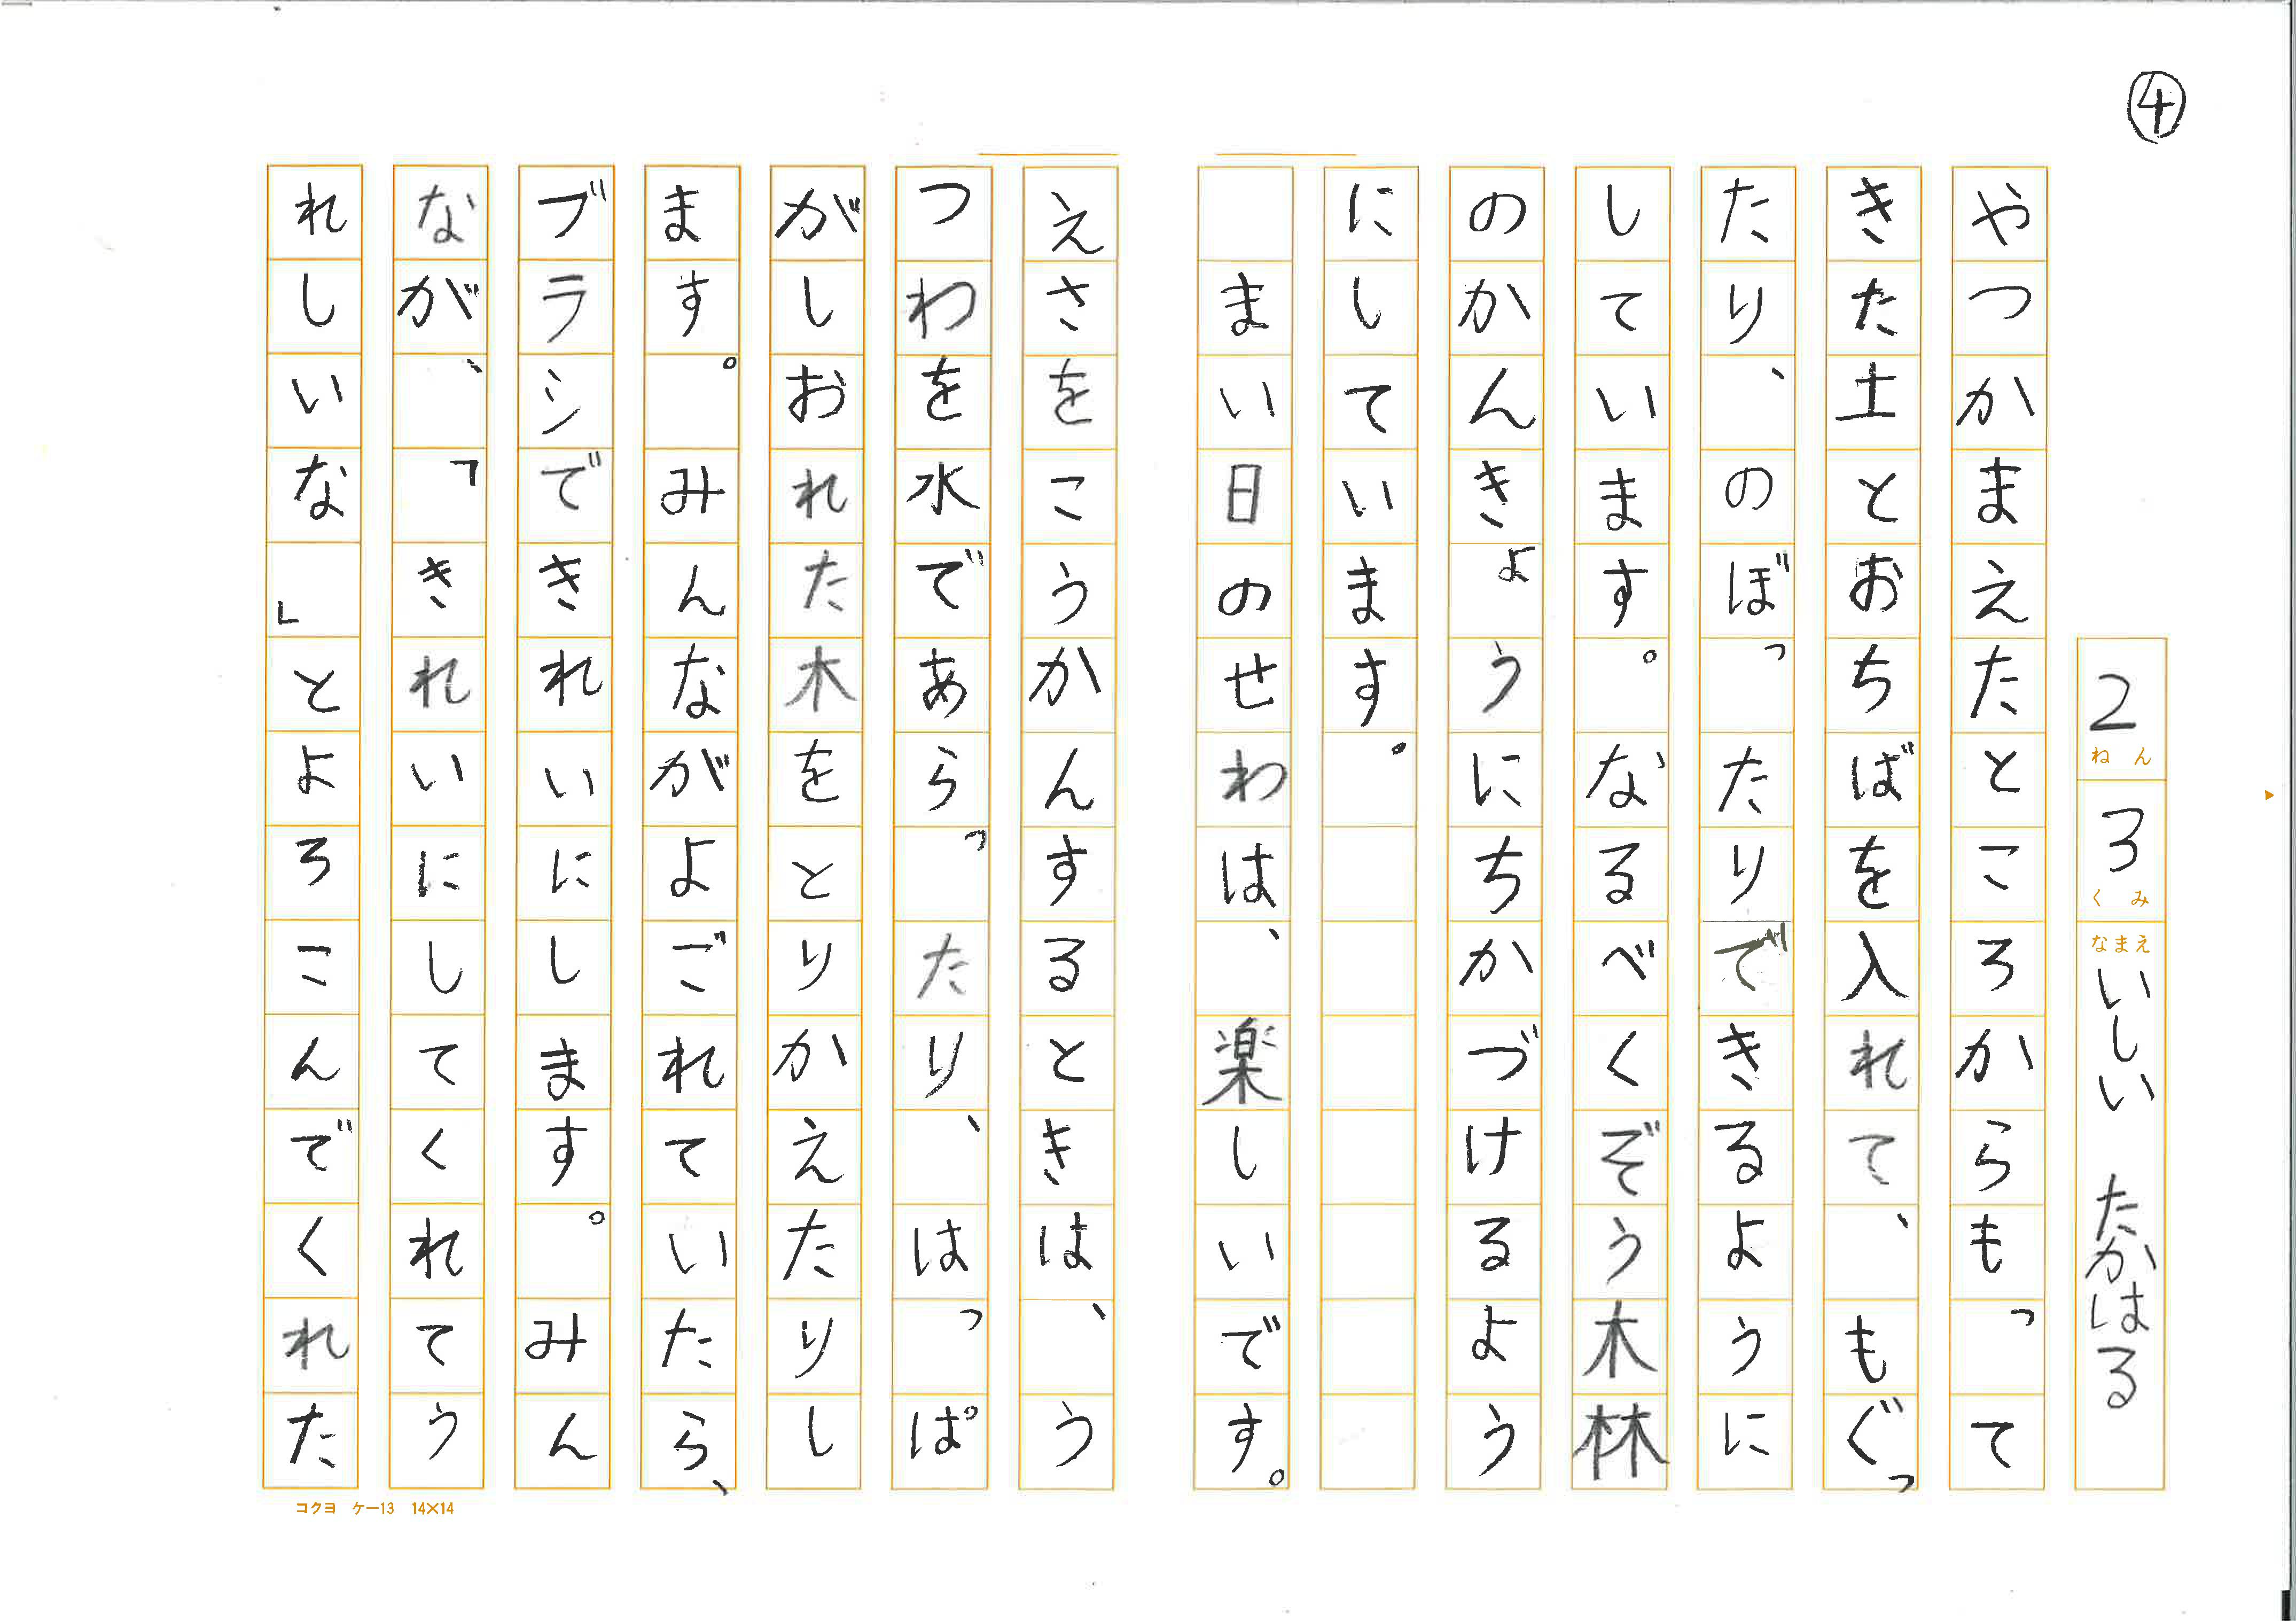 ④
2ねん 3くみ なまえ いしい たかはる
やつかまえたところからもって
きた土とおちばを入れて、もぐっ
たり、のぼったりできるように
しています。なるべくぞう木林
のかんきょうにちかづけるよう
にしています。
まい日のせわは、楽しいです。
えさをこうかんするときは、う
つわを水であらったり、はっぱ
がしおれた木をとりかえたりし
ます。みんながよごれていたら、
ブラシできれいにします。みん
なが、「きれいにしてくれてう
れしいな」とよろこんでくれた
コクヨ ケー13 14×14